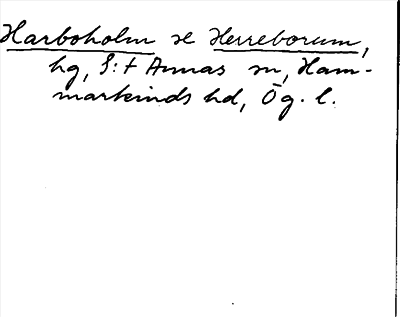 Harboholm se Herreborum,
hg, S:t Annas sn, Ham-
markinds hd, Ög. l.